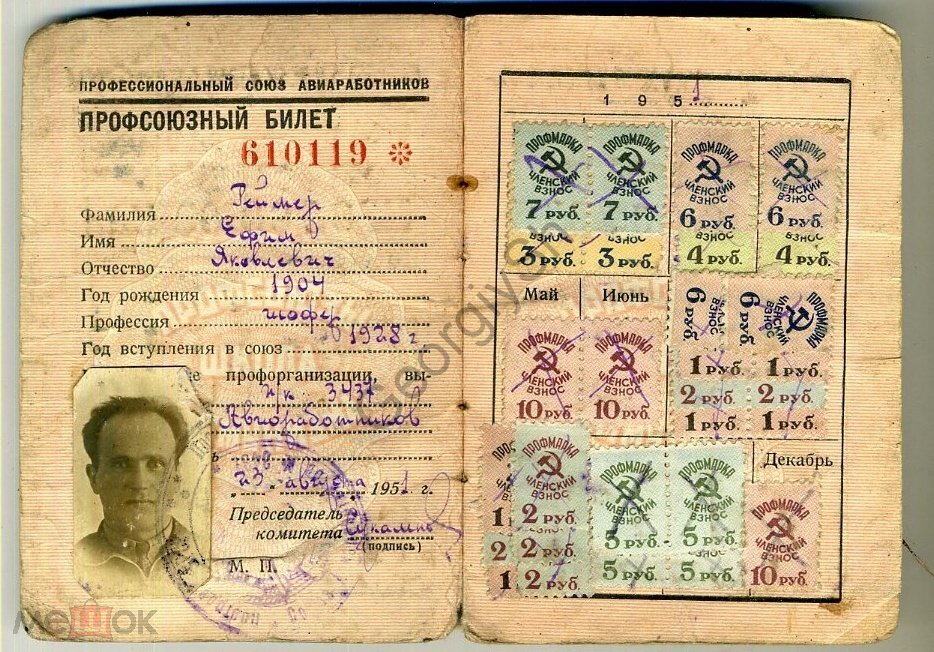 ПРОФЕССИОНАЛЬНЫЙ СОЮЗ АВИАРАБОТНИКОВ
ПРОФСОЮЗНЫЙ БИЛЕТ
610119 *
Фамилия Реймер
Имя Ефим
Отчество Яковлевич
Год рождения 1904
Профессия шофер
Год вступления в союз в 1928 г
профорганизации, вы-
п/к 3437
Авиоработников
"23" августа 1951 г.
Председатель
комитета
(подпись)
М. П.
1951
ПРОФМАРКА ПРОФМАРКА ПРОФМАРКА ПРОФМАРКА
ЧЛЕНСКИЙ ЧЛЕНСКИЙ ЧЛЕНСКИЙ ЧЛЕНСКИЙ
ВЗНОС ВЗНОС ВЗНОС ВЗНОС
7 РУБ. 7 РУБ. 6 РУБ. 6 РУБ.
ВЗНОС ВЗНОС ВЗНОС ВЗНОС
3 РУБ. 3 РУБ. 4 РУБ. 4 РУБ.
Май Июнь
6 РУБ. ВЗНОС 6 РУБ. ПРОФМАРКА ЧЛЕНСКИЙ ВЗНОС
ПРОФМАРКА ПРОФМАРКА
ЧЛЕНСКИЙ ЧЛЕНСКИЙ
ВЗНОС ВЗНОС
10 РУБ. 10 РУБ.
1 РУБ. 1 РУБ.
2 РУБ. 2 РУБ.
1 РУБ. 1 РУБ.
Декабрь
ПРОФМАРКА ПРОФМАРКА ПРОФМАРКА ПРОФМАРКА
ЧЛЕНСКИЙ ЧЛЕНСКИЙ ЧЛЕНСКИЙ ЧЛЕНСКИЙ
ВЗНОС ВЗНОС ВЗНОС ВЗНОС
1 2 РУБ. 5 РУБ. 5 РУБ. 10 РУБ.
2 2 РУБ. 5 РУБ. 5 РУБ.
1 2 РУБ.
Georgiy
МеШоК